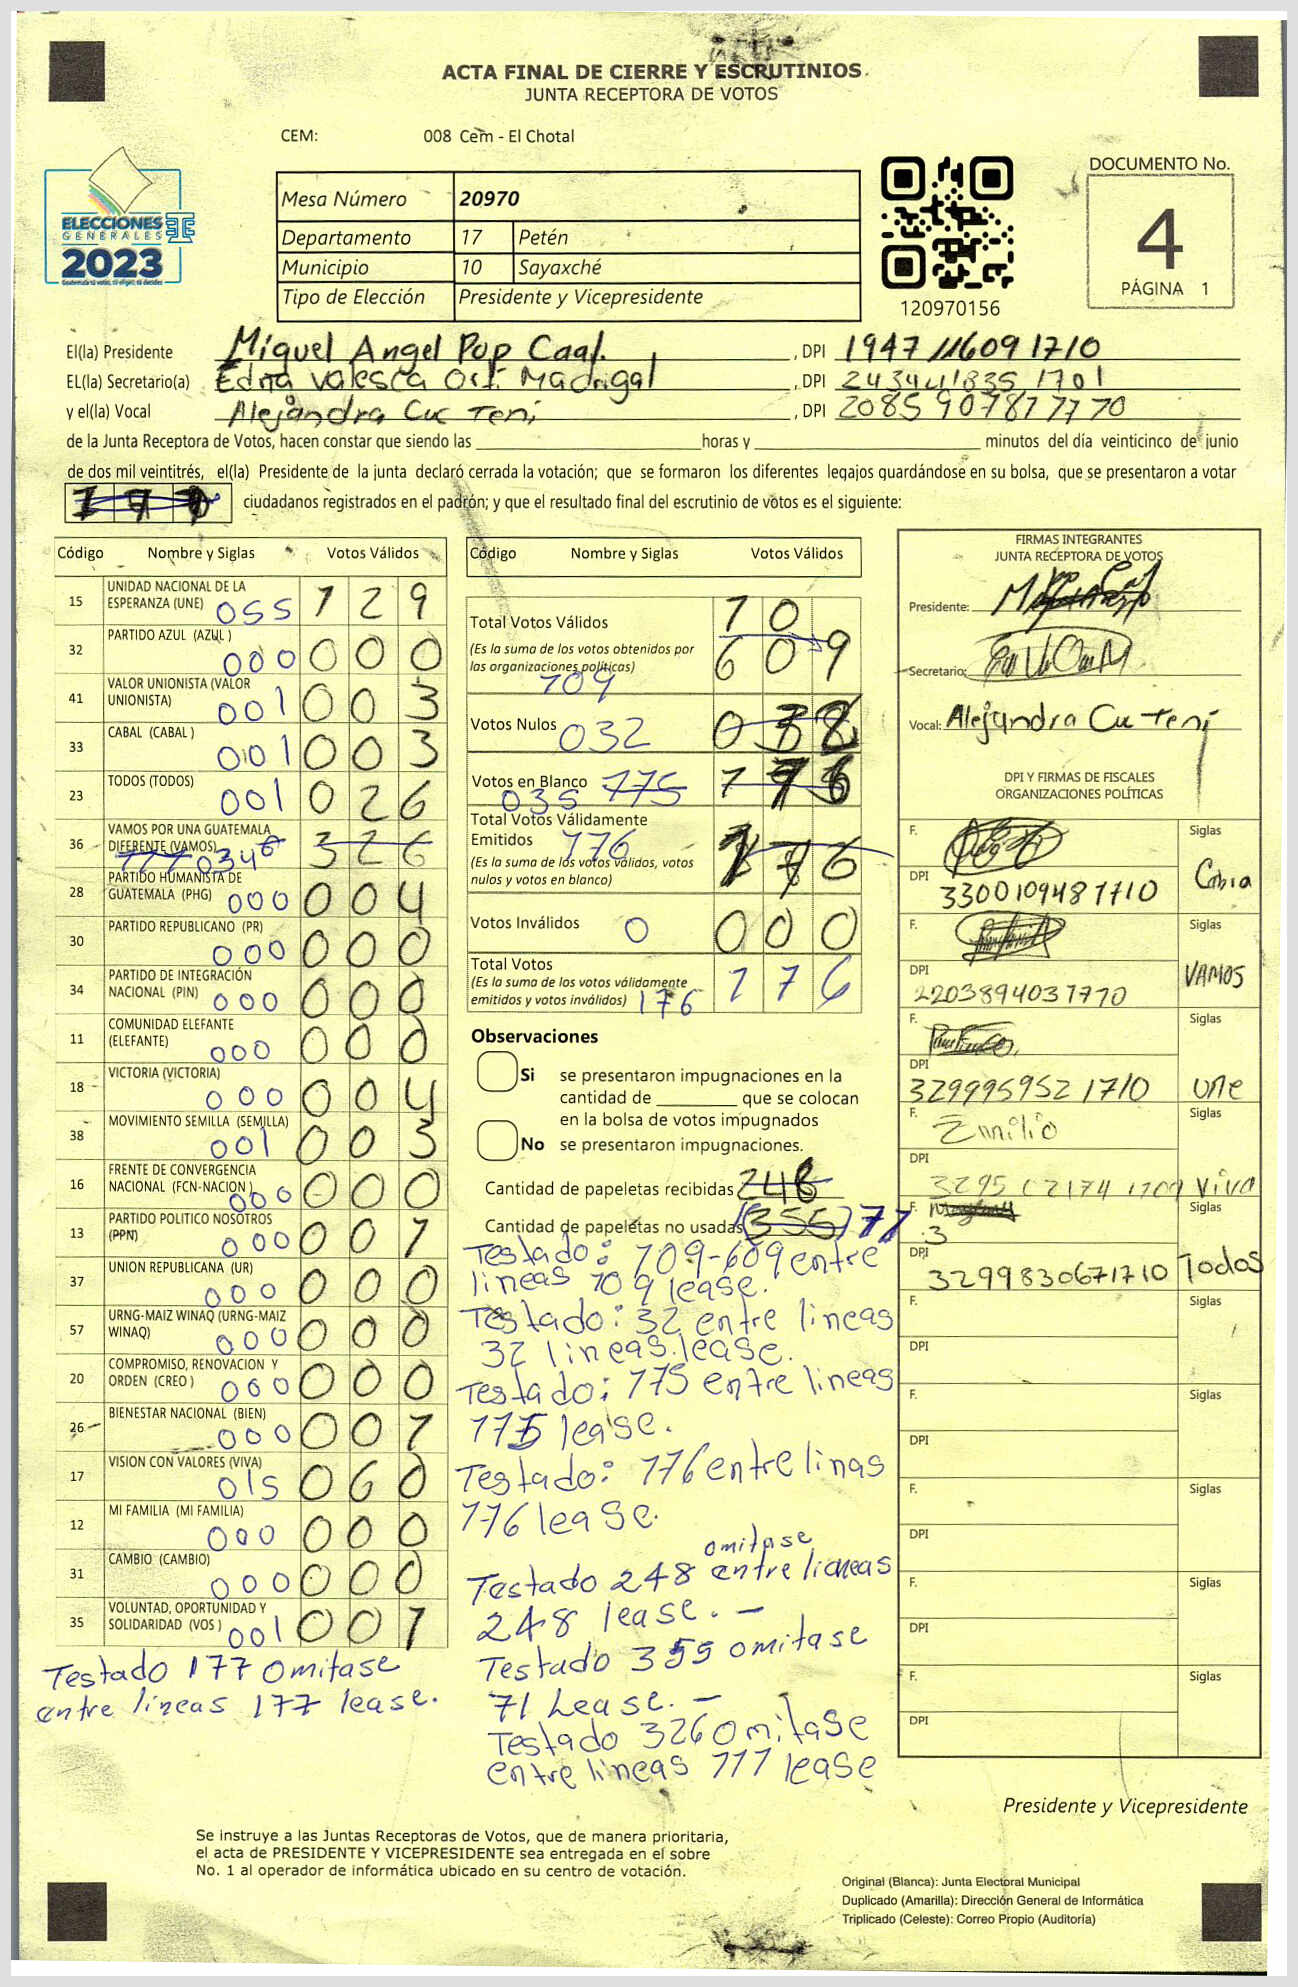 ACTA FINAL DE CIERRE Y ESCRUTINIOS
JUNTA RECEPTORA DE VOTOS
CEM: 008 Cem - El Chotal
ELECCIONES
GENERALES
2023
Mesa Número 20970
Departamento 17 Petén
Municipio 10 Sayaxché
Tipo de Elección Presidente y Vicepresidente
120970156
DOCUMENTO No.
4
PÁGINA 1
El(la) Presidente Miguel Angel Pop Caal. , DPI 1947 116091710
EL(la) Secretario(a) Edna Valesca Madrigal , DPI 243441835 1701
y el(la) Vocal Alejandra Cuc Teni , DPI
de la Junta Receptora de Votos, hacen constar que siendo las horas y minutos del día veinticinco de junio
de dos mil veintitrés, el(la) Presidente de la junta declaró cerrada la votación; que se formaron los diferentes legajos guardándose en su bolsa, que se presentaron a votar
ciudadanos registrados en el padrón; y que el resultado final del escrutinio de votos es el siguiente:
Código Nombre y Siglas Votos Válidos
15 UNIDAD NACIONAL DE LA
ESPERANZA (UNE) 055 129
32 PARTIDO AZUL (AZUL ) 000 000
41 VALOR UNIONISTA (VALOR
UNIONISTA) 001 003
33 CABAL (CABAL ) 001 003
23 TODOS (TODOS) 001 026
36 VAMOS POR UNA GUATEMALA
DIFERENTE (VAMOS) 326
28 PARTIDO HUMANISTA DE
GUATEMALA (PHG) 000 004
30 PARTIDO REPUBLICANO (PR) 000 000
34 PARTIDO DE INTEGRACIÓN
NACIONAL (PIN) 000 000
11 COMUNIDAD ELEFANTE
(ELEFANTE) 000 000
18 VICTORIA (VICTORIA) 000 004
38 MOVIMIENTO SEMILLA (SEMILLA) 001 003
16 FRENTE DE CONVERGENCIA
NACIONAL (FCN-NACION ) 000 000
13 PARTIDO POLITICO NOSOTROS
(PPN) 000 001
37 UNION REPUBLICANA (UR) 000 000
57 URNG-MAIZ WINAQ (URNG-MAIZ
WINAQ) 000 000
20 COMPROMISO, RENOVACION Y
ORDEN (CREO ) 000 000
26 BIENESTAR NACIONAL (BIEN) 000 001
17 VISION CON VALORES (VIVA) 015 060
12 MI FAMILIA (MI FAMILIA) 000 000
31 CAMBIO (CAMBIO) 000 000
35 VOLUNTAD, OPORTUNIDAD Y
SOLIDARIDAD (VOS ) 001 001
Testado 177 Omitase
entre lineas 177 lease.
Código Nombre y Siglas Votos Válidos
Total Votos Válidos 10
(Es la suma de los votos obtenidos por
las organizaciones políticas) 609
109
Votos Nulos 032
Votos en Blanco 175
035
Total Votos Válidamente
Emitidos 176 176
(Es la suma de los votos válidos, votos
nulos y votos en blanco)
Votos Inválidos 0 000
Total Votos
(Es la suma de los votos válidamente
emitidos y votos inválidos) 176 176
Observaciones
Si se presentaron impugnaciones en la
cantidad de que se colocan
en la bolsa de votos impugnados
No se presentaron impugnaciones.
Cantidad de papeletas recibidas 248
Cantidad de papeletas no usadas (355) 71
Testado: 109-609 entre
lineas 109 lease.
Testado: 32 entre lineas
32 lineas lease.
Testado: 175 entre lineas
175 lease.
Testado: 176 entre linas
176 lease.
omitase
Testado 248 entre lioneas
248 lease. -
Testado 355 omitase
71 Lease. -
Testado 326 Omitase
entre lineas 111 lease
FIRMAS INTEGRANTES
JUNTA RECEPTORA DE VOTOS
Presidente:
Secretario:
Vocal: Alejandra Cu Teni
DPI Y FIRMAS DE FISCALES
ORGANIZACIONES POLÍTICAS
F. Siglas
DPI 3300109481710
F. Siglas
DPI 2203894031710 VAMOS
F. Siglas
DPI 329995952 1710 Une
F. Emilio Siglas
DPI Viva
F. Siglas
DPI 3299830671710 Todos
F. Siglas
DPI
F. Siglas
DPI
F. Siglas
DPI
F. Siglas
DPI
F. Siglas
DPI
Presidente y Vicepresidente
Se instruye a las Juntas Receptoras de Votos, que de manera prioritaria,
el acta de PRESIDENTE Y VICEPRESIDENTE sea entregada en el sobre
No. 1 al operador de informática ubicado en su centro de votación.
Original (Blanca): Junta Electoral Municipal
Duplicado (Amarilla): Dirección General de Informática
Triplicado (Celeste): Correo Propio (Auditoría)